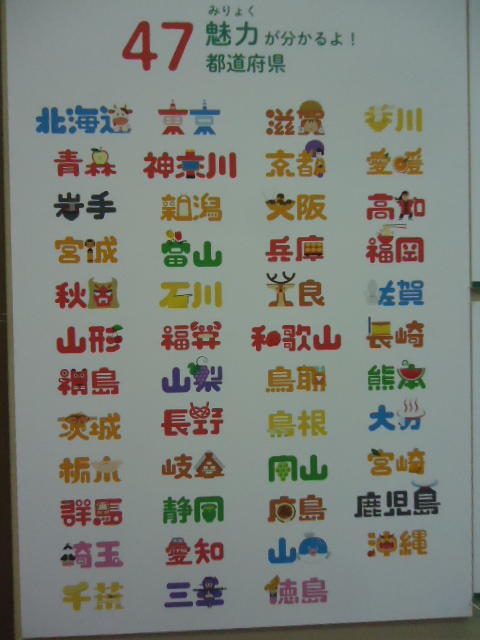 みりょく
47 魅力が分かるよ！
都道府県
北海道
青森
岩手
宮城
秋田
山形
福島
茨城
栃木
群馬
埼玉
千葉
東京
神奈川
新潟
富山
石川
福井
山梨
長野
岐阜
静岡
愛知
三重
滋賀
京都
大阪
兵庫
奈良
和歌山
鳥取
島根
岡山
広島
山口
徳島
香川
愛媛
高知
福岡
佐賀
長崎
熊本
大分
宮崎
鹿児島
沖縄